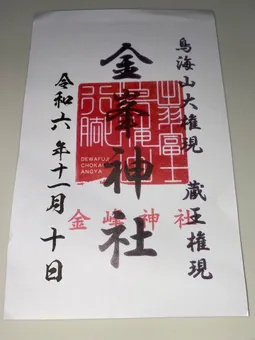 鳥海山大権現 蔵王権現
金峯神社
令和六年十一月十日
出羽富士
鳥海
行脚
DEWAFUJI
CHOKAI
ANGYA
金峰神社